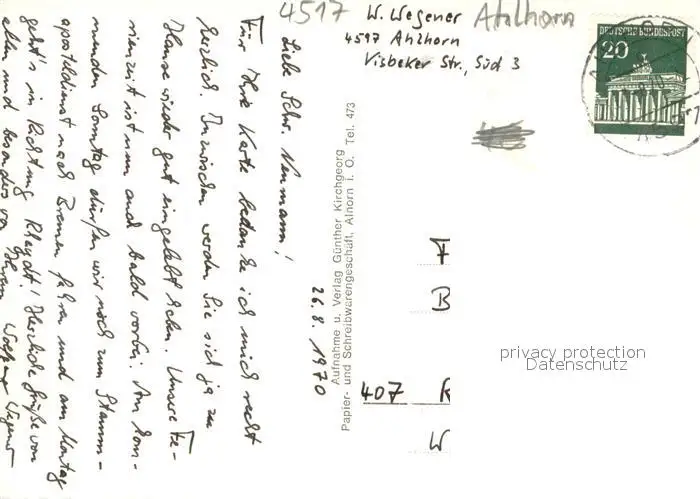 4517
W. Wegener
Ahlhorn
4517 Ahlhorn
Visbeker Str., Süd 3
DEUTSCHE BUNDESPOST
20
26.8.1970
Liebe Schw. Neumann!
Für Ihre Karte bedanke ich mich recht
herzlich. Inzwischen werden Sie sich ja zu
Hause wieder gut eingelebt haben. Unsere Fe-
rienzeit ist nun auch bald vorbei. Am kom-
menden Sonntag dürfen wir noch zum Stamm-
aposteldienst nach Bremen fahren und am Montag
geht's in Richtung Rheydt! Herzliche Grüße von
allen und besonders von Ihrem Wolfgang Wegener
Aufnahme u. Verlag Günther Kirchgeorg
Papier- und Schreibwarengeschäft, Alhorn i. O. Tel. 473
F
B
407 R
W
privacy protection
Datenschutz